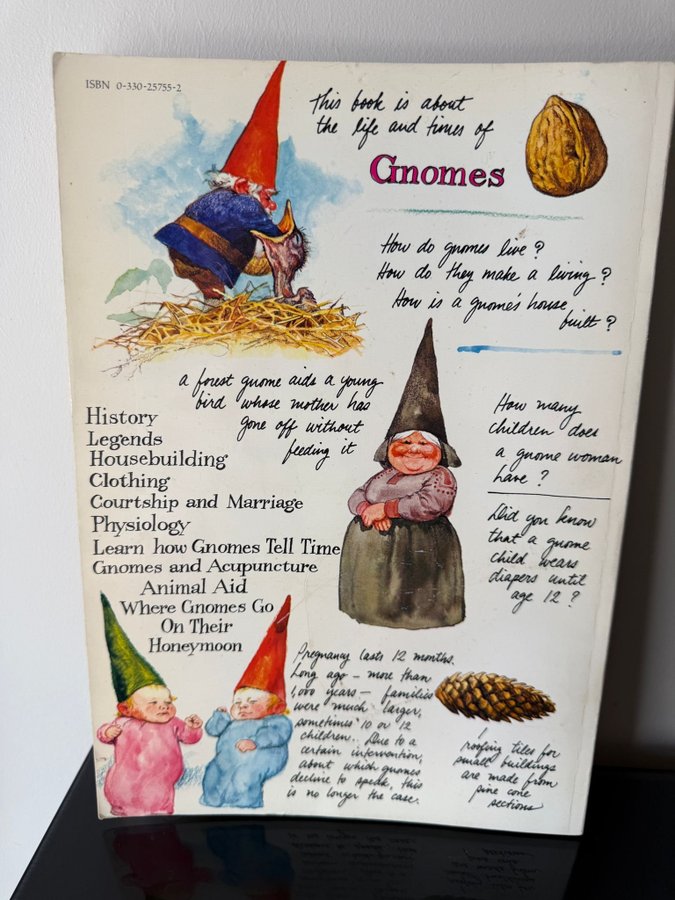 ISBN 0-330-25755-2
This book is about
the life and times of
Gnomes
How do gnomes live?
How do they make a living?
How is a gnome's house
built?
a forest gnome aids a young
bird whose mother has
gone off without
feeding it
History
Legends
Housebuilding
Clothing
Courtship and Marriage
Physiology
Learn how Gnomes Tell Time
Gnomes and Acupuncture
Animal Aid
Where Gnomes Go
On Their
Honeymoon
How many
children does
a gnome woman
have?
Did you know
that a gnome
child wears
diapers until
age 12?
Pregnancy lasts 12 months.
Long ago – more than
1,000 years – families
were much larger,
sometimes 10 or 12
children. Due to a
certain intervention,
about which gnomes
decline to speak, this
is no longer the case.
roofing tiles for
small buildings
are made from
pine cone
sections